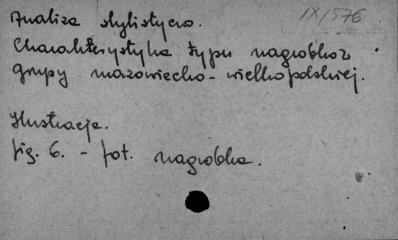 IX/576
Analiza stylistyczna.
Charakterystyka typu nagrobków
grupy mazowiecko-wielkopolskiej.
Ilustracje.
fig. 6. - fot. nagrobka.